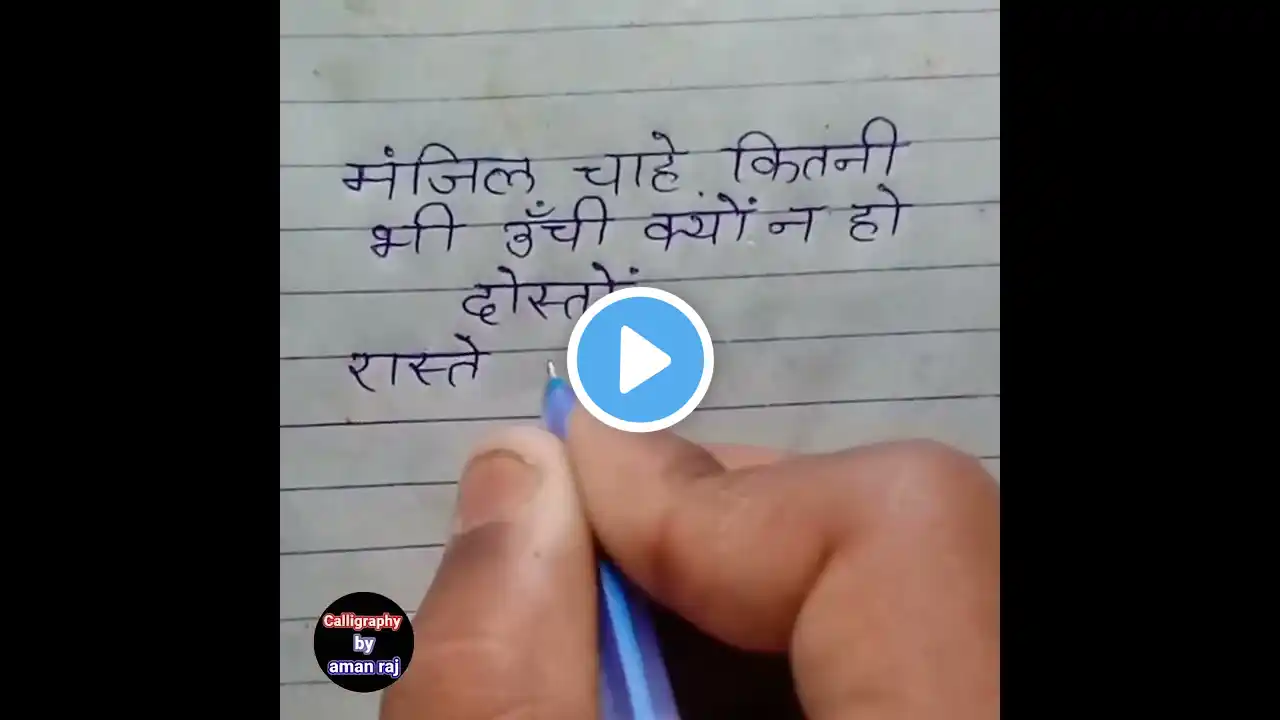 मंजिल चाहे कितनी
भी उँची क्यों न हो
दोस्तों
रास्ते
Calligraphy
by
aman raj